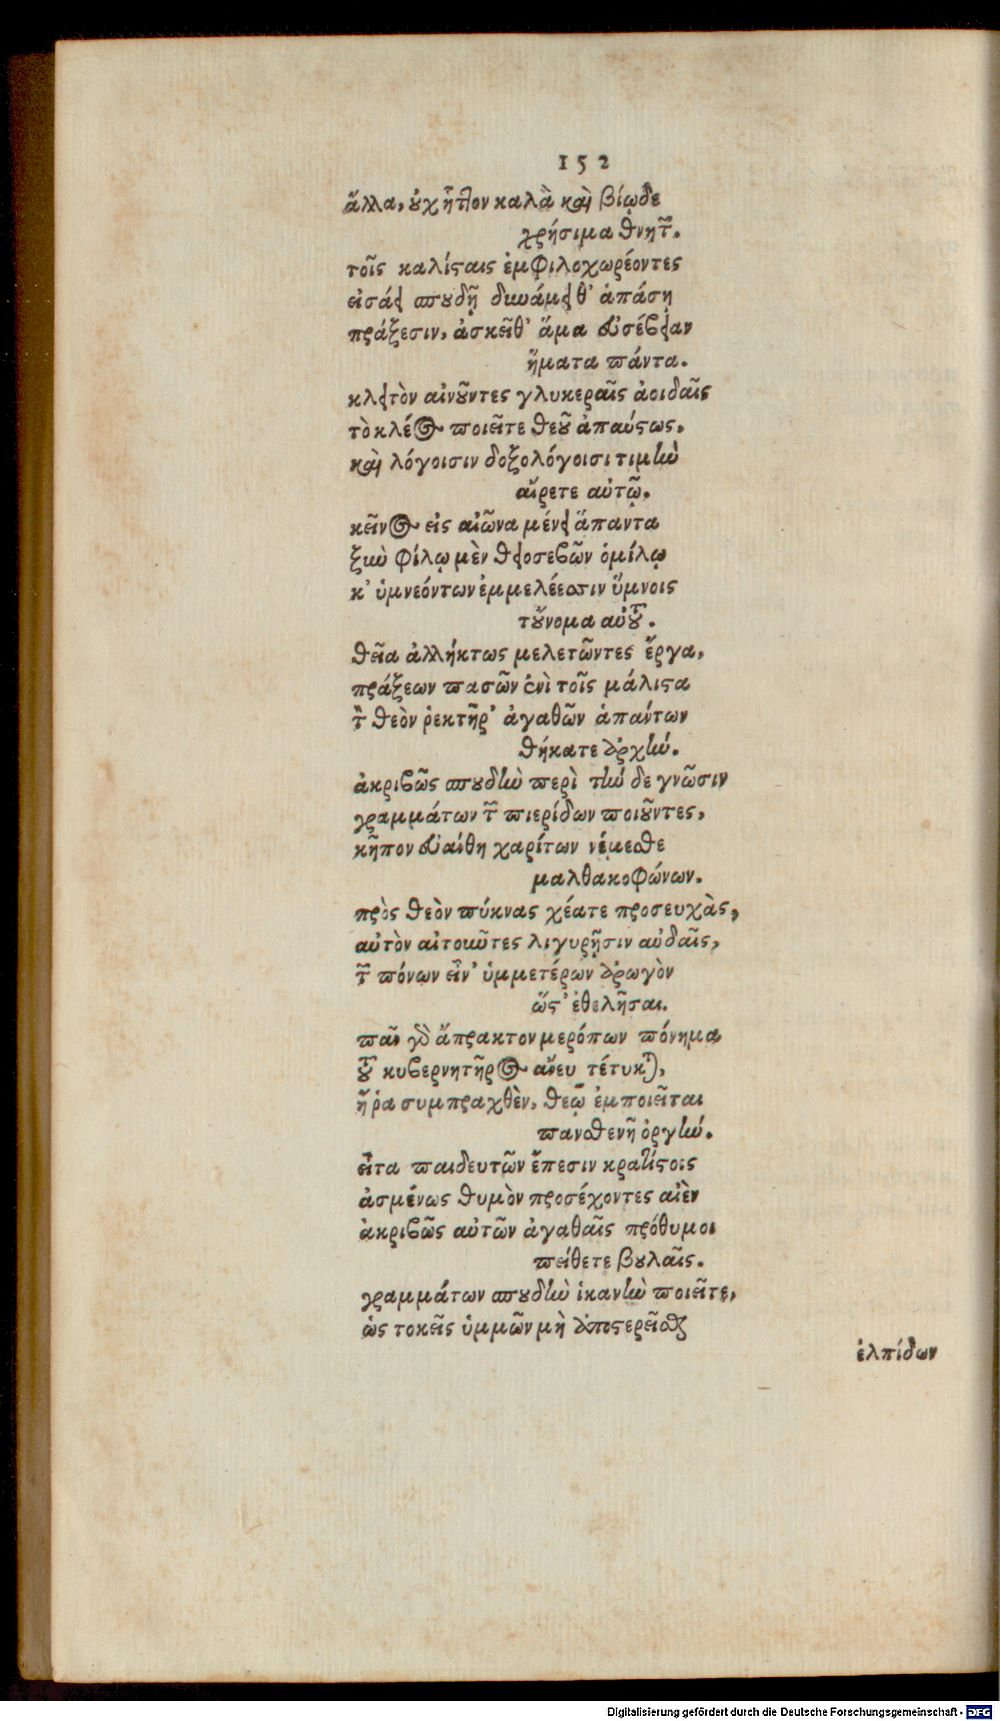 152
ἄλλα, οὐχ ἧττον καλὰ καὶ βίῳδε
χρήσιμα θνητῶν.
τοῖς καλίσταις ἐμφιλοχωρέοντες
εἰσάει σπουδῇ δυνάμει θ' ἁπάσῃ
πράξεσιν, ἀσκεῖθ' ἅμα εὐσέβειαν
ἤματα πάντα.
κλειτὸν αἰνοῦντες γλυκεραῖς ἀοιδαῖς
τὸ κλέος ποιεῖτε θεοῦ ἀπαύστως,
καὶ λόγοισιν δοξολόγοισι τιμὴν
αἴρετε αὐτῷ.
κεῖνος εἰς αἰῶνα μένει ἅπαντα
ξὺν φίλῳ μὲν θεοσεβῶν ὁμίλῳ
κ' ὑμνεόντων ἐμμελέεσσιν ὕμνοις
τοὔνομα αὐτοῦ.
θεῖα ἀλλήκτως μελετῶντες ἔργα,
πράξεων πασῶν ἐνὶ τοῖς μάλιστα
τὸν θεὸν ῥεκτῆρ' ἀγαθῶν ἁπάντων
θήκατε ἀρχήν.
ἀκριβῶς σπουδὴν περὶ τήν δε γνῶσιν
γραμμάτων τῶν πιερίδων ποιοῦντες,
κῆπον εὐαίθη χαρίτων νέμεσθε
μαλθακοφώνων.
πρὸς θεὸν πύκνας χέατε προσευχὰς,
αὐτὸν αἰτοῦντες λιγυρῇσιν αὐδαῖς,
τῶν πόνων εἶν' ὑμμετέρων ἀρωγὸν
ὥστ' ἐθελῆσαι.
πᾶν γὰρ ἄπρακτον μερόπων πόνημα
τοῦ κυβερνητῆρος ἄνευ τέτυκται,
ἤ ῥα συμπραχθὲν, θεῷ ἐμποιεῖται
πανσθενῆ ὀργήν.
εἶτα παιδευτῶν ἔπεσιν κρατίστοις
ἀσμένως θυμὸν προσέχοντες αἰὲν
ἀκριβῶς αὐτῶν ἀγαθαῖς πρόθυμοι
πείθετε βουλαῖς.
γραμμάτων σπουδὴν ἱκανὴν ποιεῖτε,
ὡς τοκεῖς ὑμμῶν μὴ ἀποστερεῖσθαι
ἐλπίδων
Digitalisierung gefördert durch die Deutsche Forschungsgemeinschaft - DFG